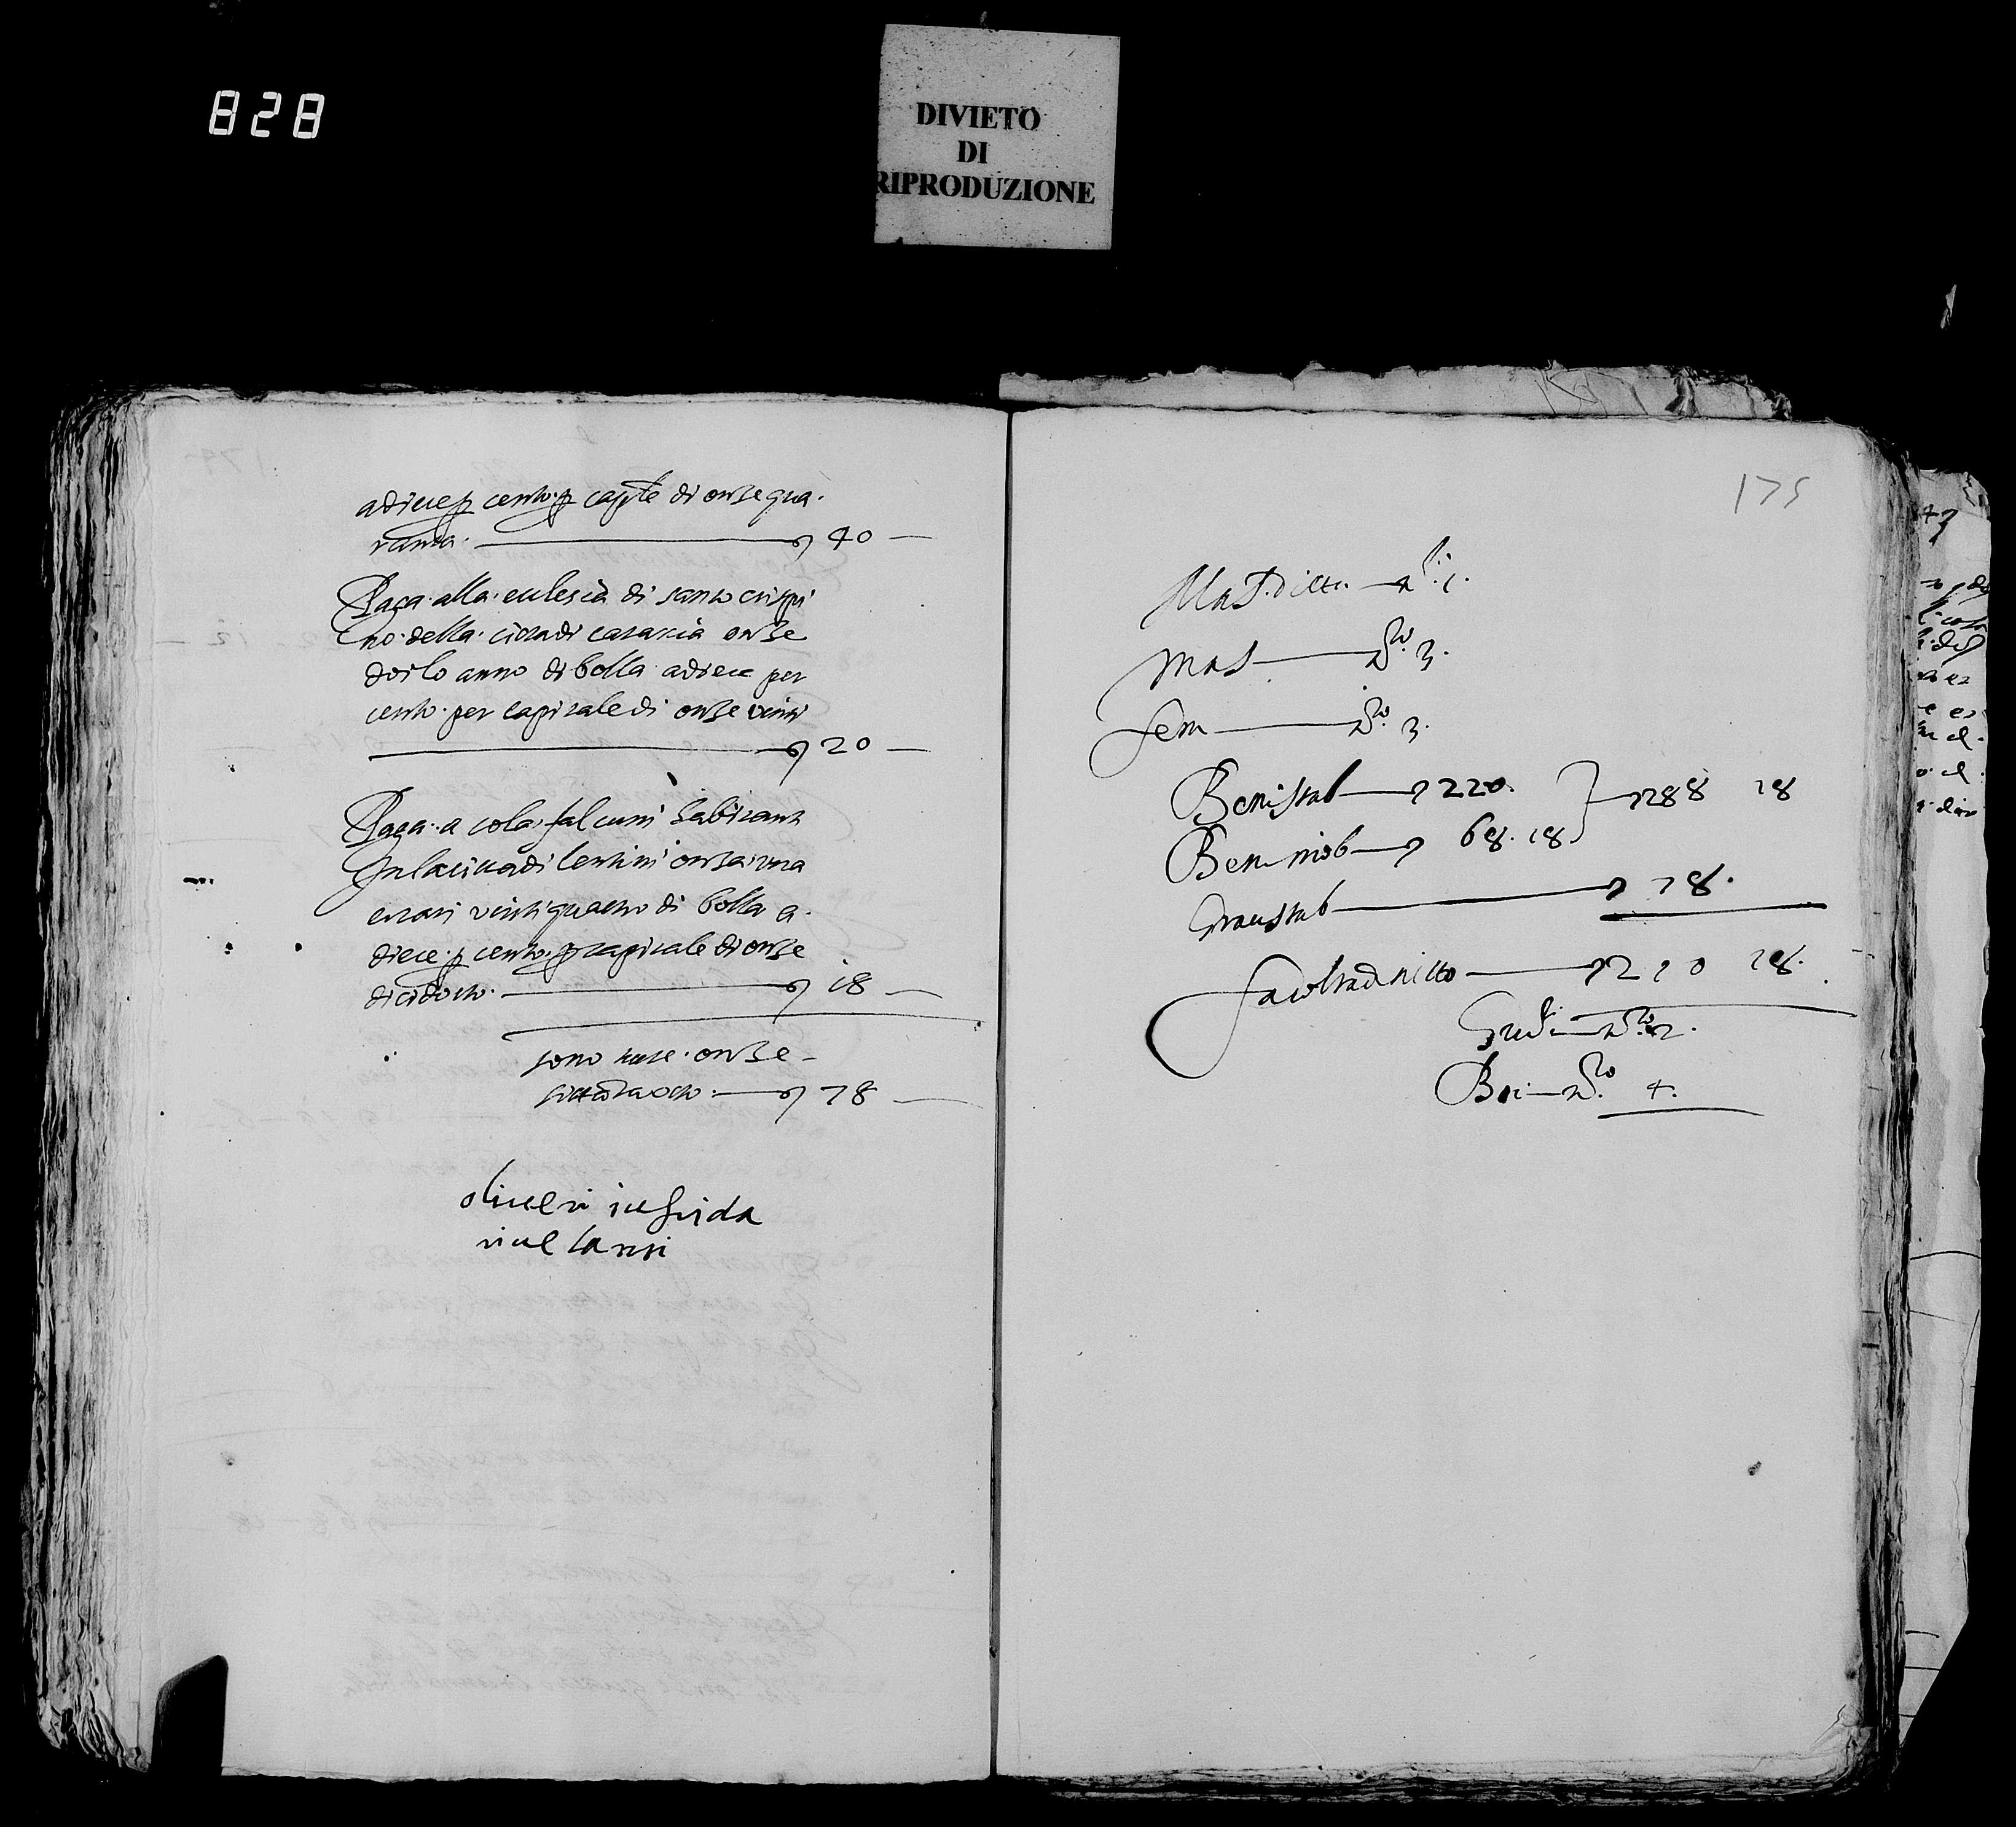 828
DIVIETO
DI
RIPRODUZIONE
a diece p cento p capte di onze qua.
ranta. 40
Paga alla ecclesia di santo crispi
no della cita di catania onze
doi lo anno di bolla a diece per
cento per capitale di onze vinti
20
Paga a cola falcuni habitanti
In la citta di lentini onza una
e tari vintiquattro di bolla a
diece p cento p capitale di onze
dicidocto. 18
sono tute onze
78
oliveri
175
Mas. 1.
Mas 3.
fem 3.
Beni stab 220. 288 18
Beni mob 68. 18
Grav stab 78.
facolta d nitto 210 18.
2.
Boi 4.